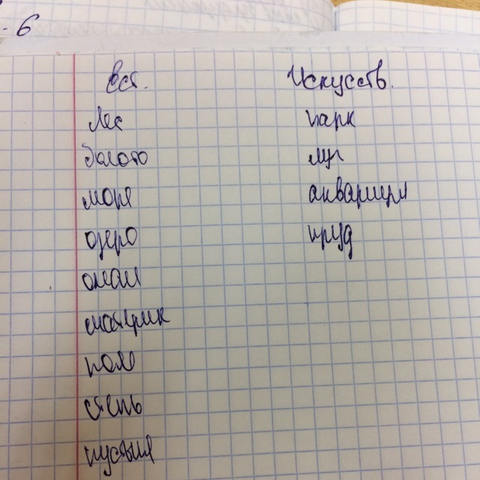 - 6
Ест.
Лес
болото
море
озеро
океан
материк
поле
степь
пустыня
Искусств.
парк
луг
аквариум
пруд